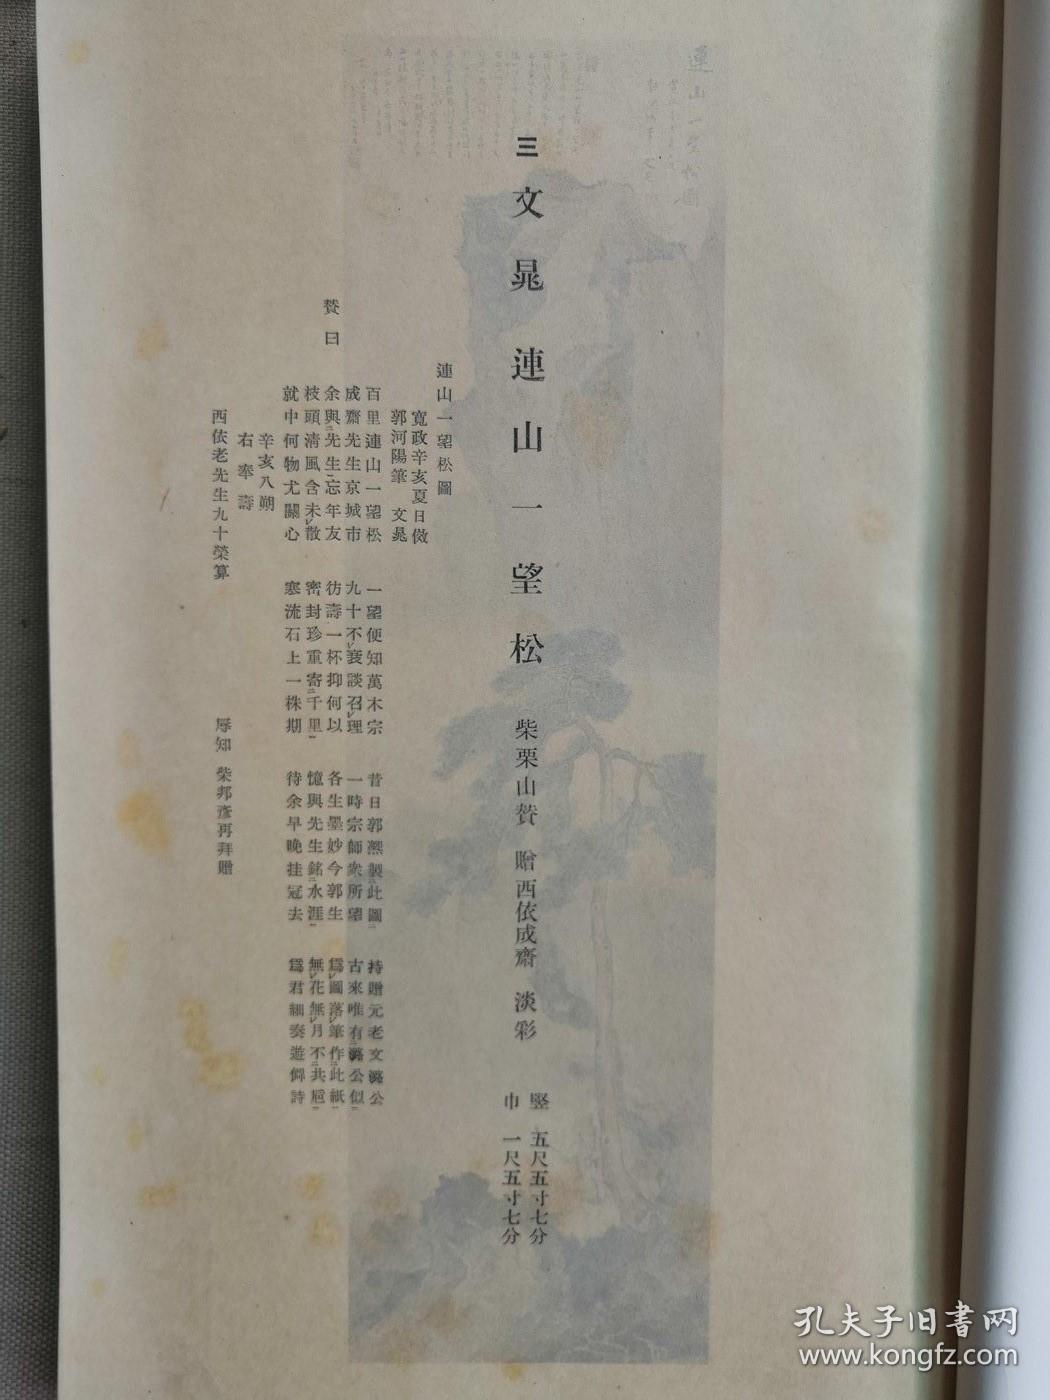 三 文晁 連山一望松 柴栗山賛 贈西依成齋 淡彩
竪 五尺五寸七分
巾 一尺五寸七分
連山一望松圖
寬政辛亥夏日倣
郭河陽筆 文晁
賛曰
百里連山一望松 一望便知萬木宗 昔日郭熈製此圖 持贈元老文潞公
成齋先生京城市 九十不衰談召理 一時宗師衆所望 古來唯有潞公似
余與先生忘年友 彷壽一杯抑何以 各生墨妙今郭生 爲圖落筆作此紙
枝頭清風含未散 密封珍重寄千里 憶與先生銘水涯 無花無月不共巵
就中何物尤關心 寒流石上一株期 待余早晚挂冠去 爲君細奏遊僊詩
辛亥八朔
右奉壽
西依老先生九十榮算 辱知 柴邦彥再拜贈
孔夫子旧书网
www.kongfz.com